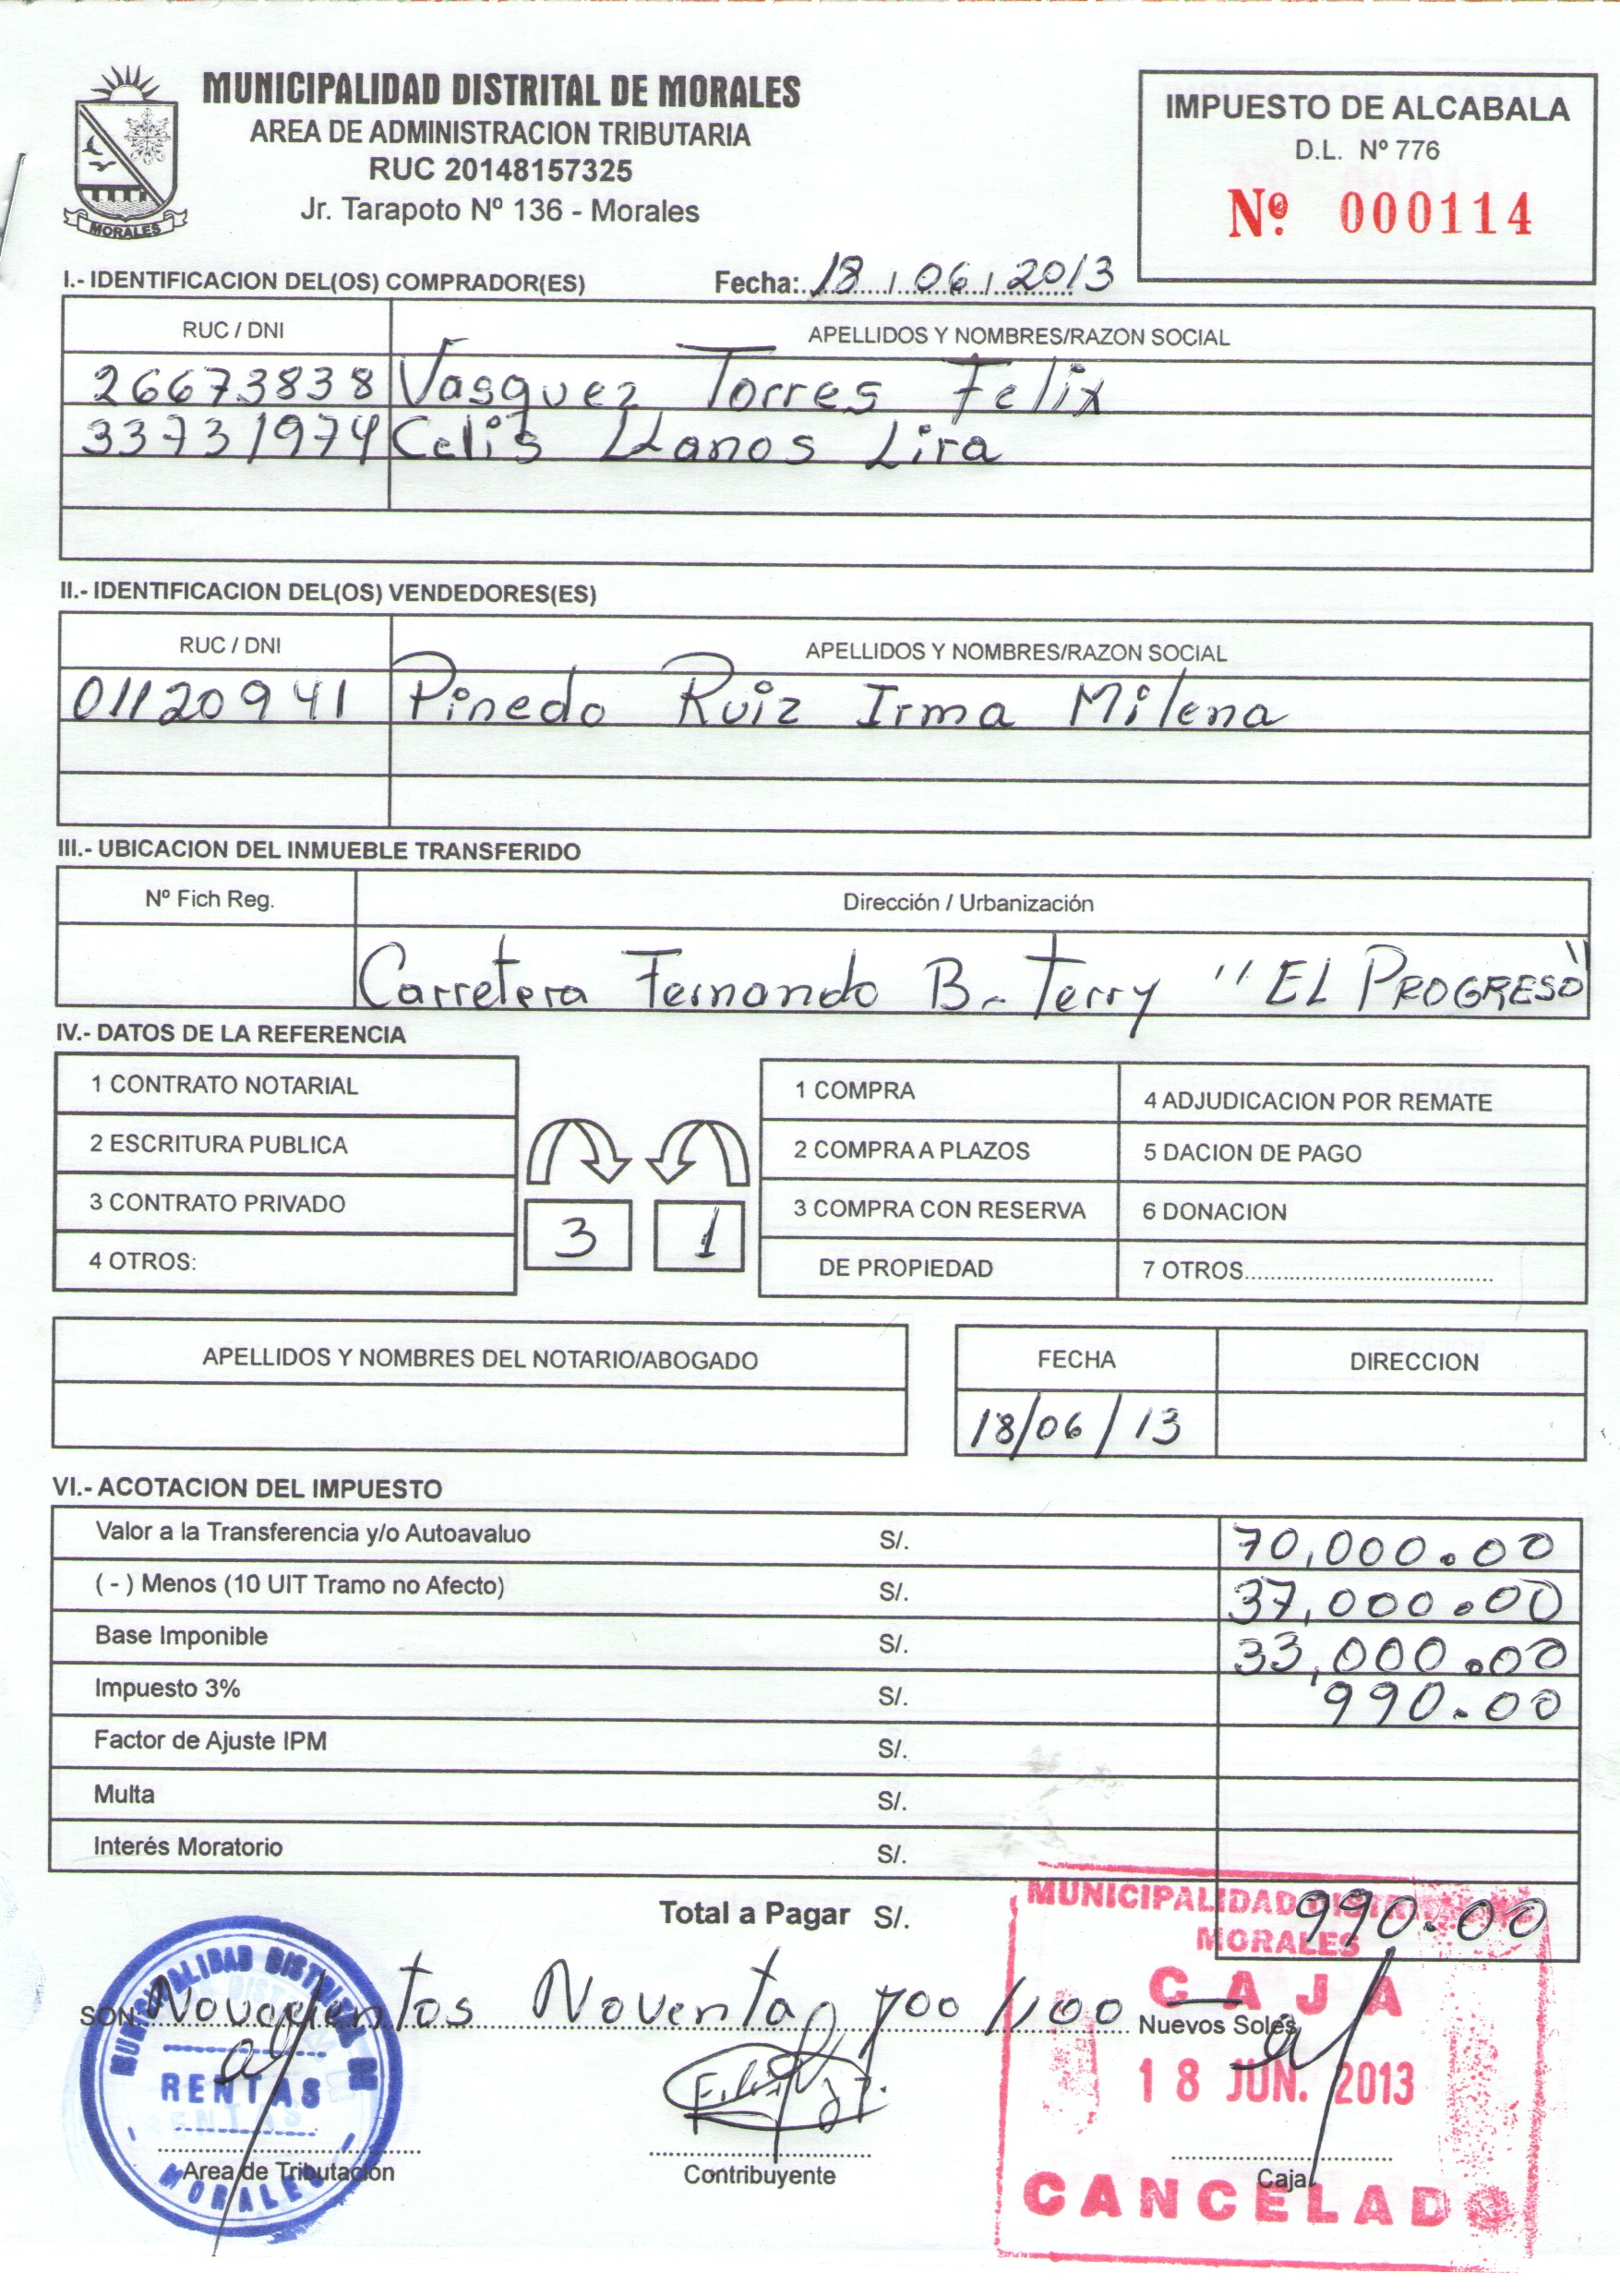 MUNICIPALIDAD DISTRITAL DE MORALES
AREA DE ADMINISTRACION TRIBUTARIA
RUC 20148157325
Jr. Tarapoto Nº 136 - Morales
MORALES
IMPUESTO DE ALCABALA
D.L. Nº 776
Nº 000114
I.- IDENTIFICACION DEL(OS) COMPRADOR(ES) Fecha: 18 / 06 / 2013
RUC / DNI APELLIDOS Y NOMBRES/RAZON SOCIAL
26673838 Vasquez Torres Felix
33731974 Celis Llanos Lira
II.- IDENTIFICACION DEL(OS) VENDEDORES(ES)
RUC / DNI APELLIDOS Y NOMBRES/RAZON SOCIAL
01120941 Pinedo Ruiz Irma Milena
III.- UBICACION DEL INMUEBLE TRANSFERIDO
Nº Fich Reg. Dirección / Urbanización
Carretera Fernando B. Terry "EL PROGRESO"
IV.- DATOS DE LA REFERENCIA
1 CONTRATO NOTARIAL
2 ESCRITURA PUBLICA
3 CONTRATO PRIVADO
4 OTROS:
3 1
1 COMPRA 4 ADJUDICACION POR REMATE
2 COMPRA A PLAZOS 5 DACION DE PAGO
3 COMPRA CON RESERVA 6 DONACION
DE PROPIEDAD 7 OTROS
APELLIDOS Y NOMBRES DEL NOTARIO/ABOGADO FECHA DIRECCION
18/06/13
VI.- ACOTACION DEL IMPUESTO
Valor a la Transferencia y/o Autoavaluo S/. 70,000.00
( - ) Menos (10 UIT Tramo no Afecto) S/. 37,000.00
Base Imponible S/. 33,000.00
Impuesto 3% S/. 990.00
Factor de Ajuste IPM S/.
Multa S/.
Interés Moratorio S/.
Total a Pagar S/. 990.00
SON: Novecientos Noventa y 00/100 Nuevos Soles
MUNICIPALIDAD DISTRITAL DE
RENTAS
MORALES
MUNICIPALIDAD DISTRITAL DE
MORALES
CAJA
18 JUN. 2013
CANCELADO
Area de Tributación Contribuyente Caja